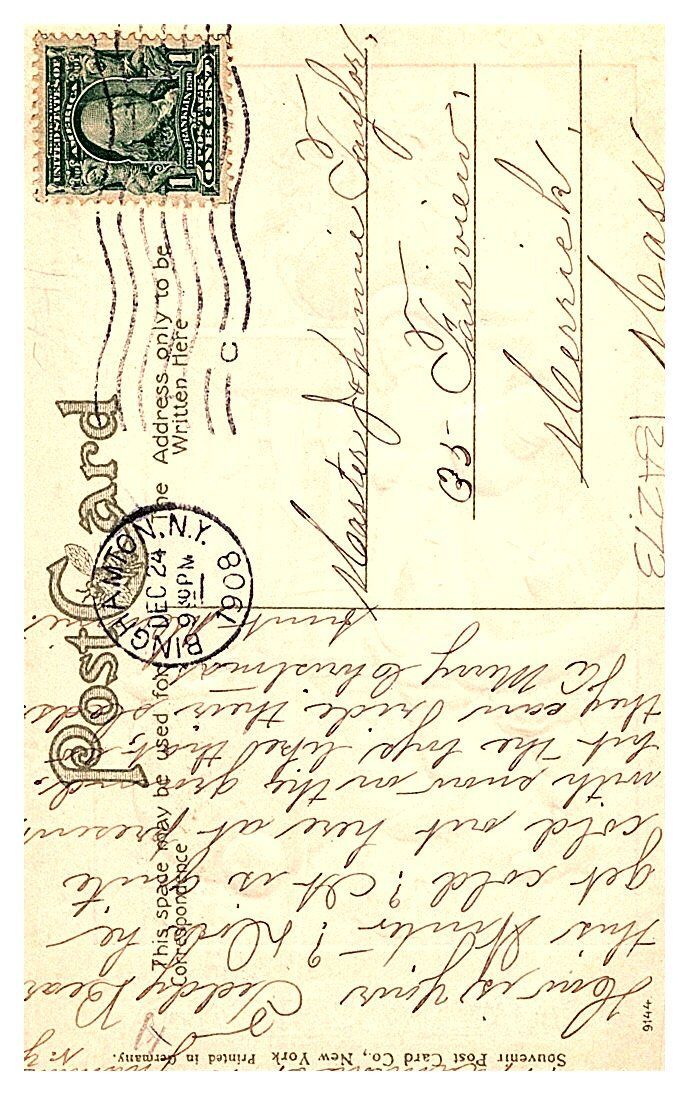 Post Card
This space may be used for
Correspondence
The Address only to be
Written Here
UNITED STATES OF
AMERICA
FRANKLIN
ONE CENT
1 1
C
BINGHAMTON, N.Y.
DEC 24
9 30 PM
1908
Master Johnnie Taylor,
35 Fairview,
Merrick,
Mass
N.Y
How is your Teddy Bear
this Winter? Does he
get cold? It is quite
cold out here at present
with snow on the ground
but the boys liked that,
they can ride their sleds
A Merry Christmas
Aunt
Souvenir Post Card Co., New York Printed in Germany.
9144